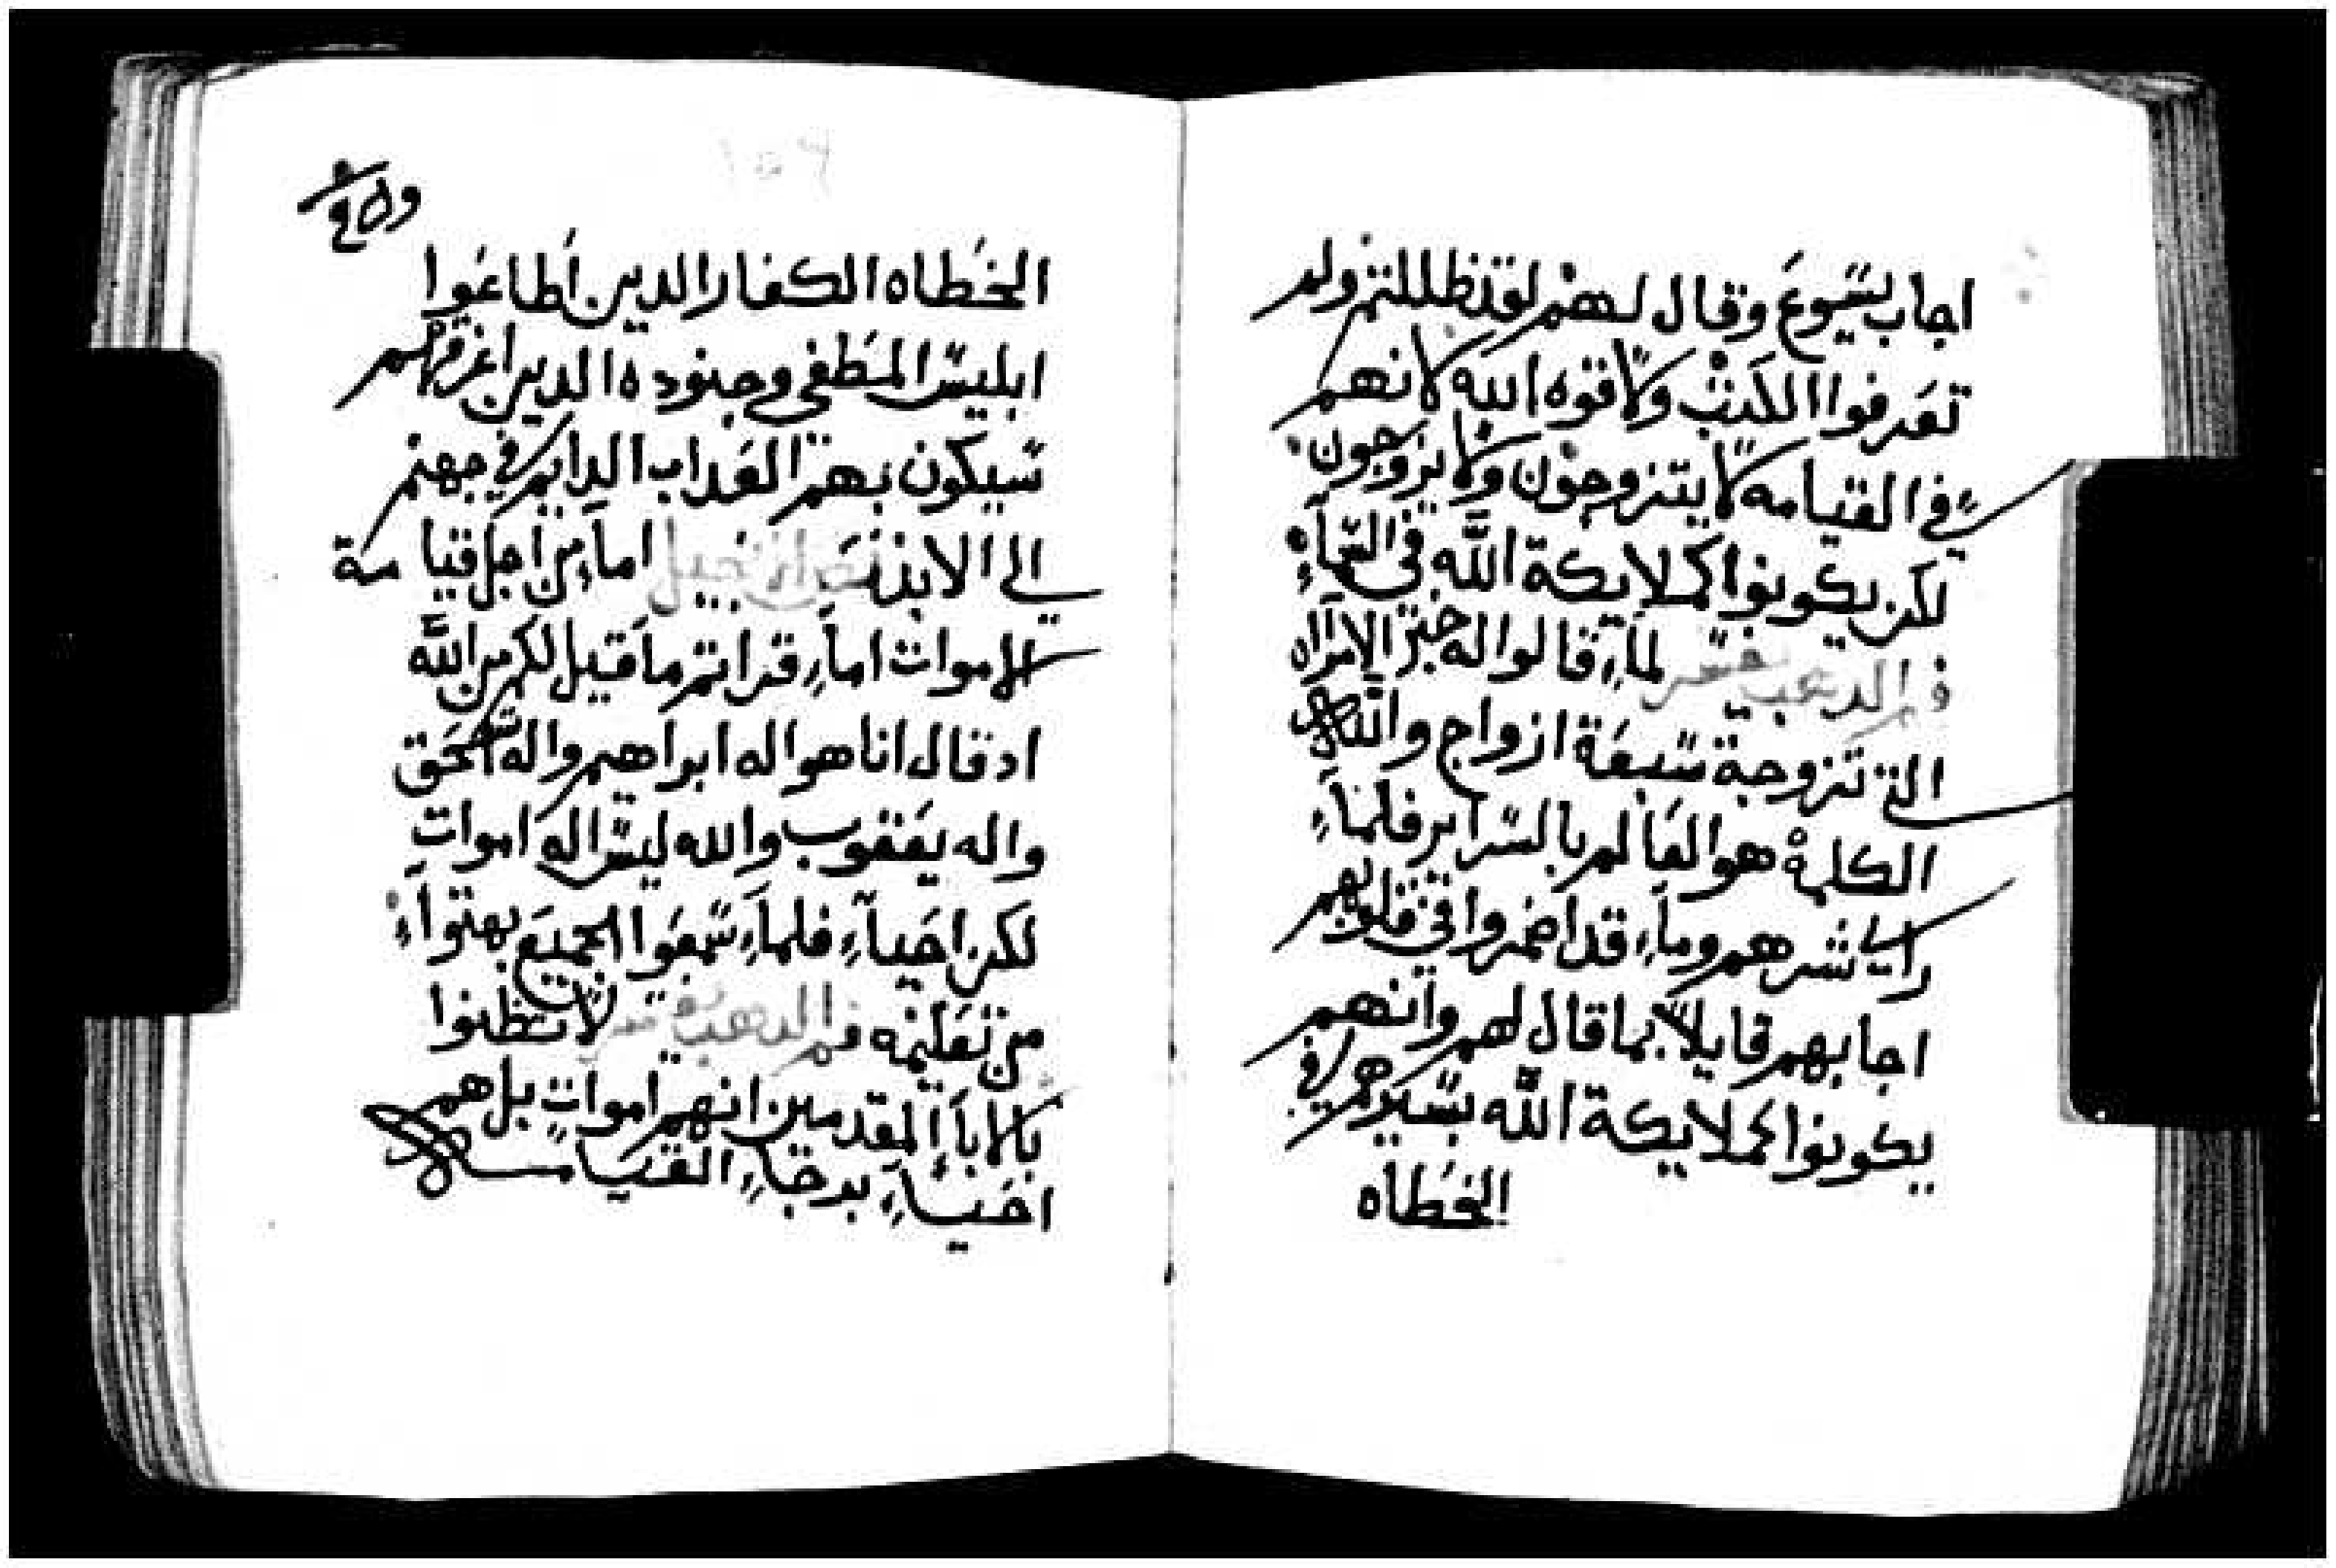 اجاب يسوع وقال لهم لقد ظللتم ولم
تعرفوا الكتب ولا قوه الله لانهم
في القيامه لا يتزوجون ولا يزوجون
لكن يكونوا كملايكة الله في السماء
فم الدهب يفسر لماء قالوا له خبر الامراه
التي تزوجة سبعة ازواج والله
الكلمة هو العالم بالسراير فلماء
راي شرهم وماء قد اضمروا في قلوبهم
اجابهم قايلاً بما قال لهم وانهم
يكونوا كملايكة الله بشيرهم في
الخطاه
الخطاه الكفار الدين اطاعوا
ابليس المطغي وجنوده الدين اغرقهم
سيكون بهم العداب الدايم في جهنم
الي الابد نص الانجيل اماء من اجل قيامة
الاموات اماء قراتم ما قيل لكم من الله
اد قال انا هو اله ابراهيم واله اسحق
واله يعقوب والله ليس اله اموات
لكن احياء فلماء سمعوا الجميع بهتواء
من تعليمه فم الدهب يفسر لا تظنوا
بالاباء المقدمين انهم اموات بل هم
احياء برجاء القيامه